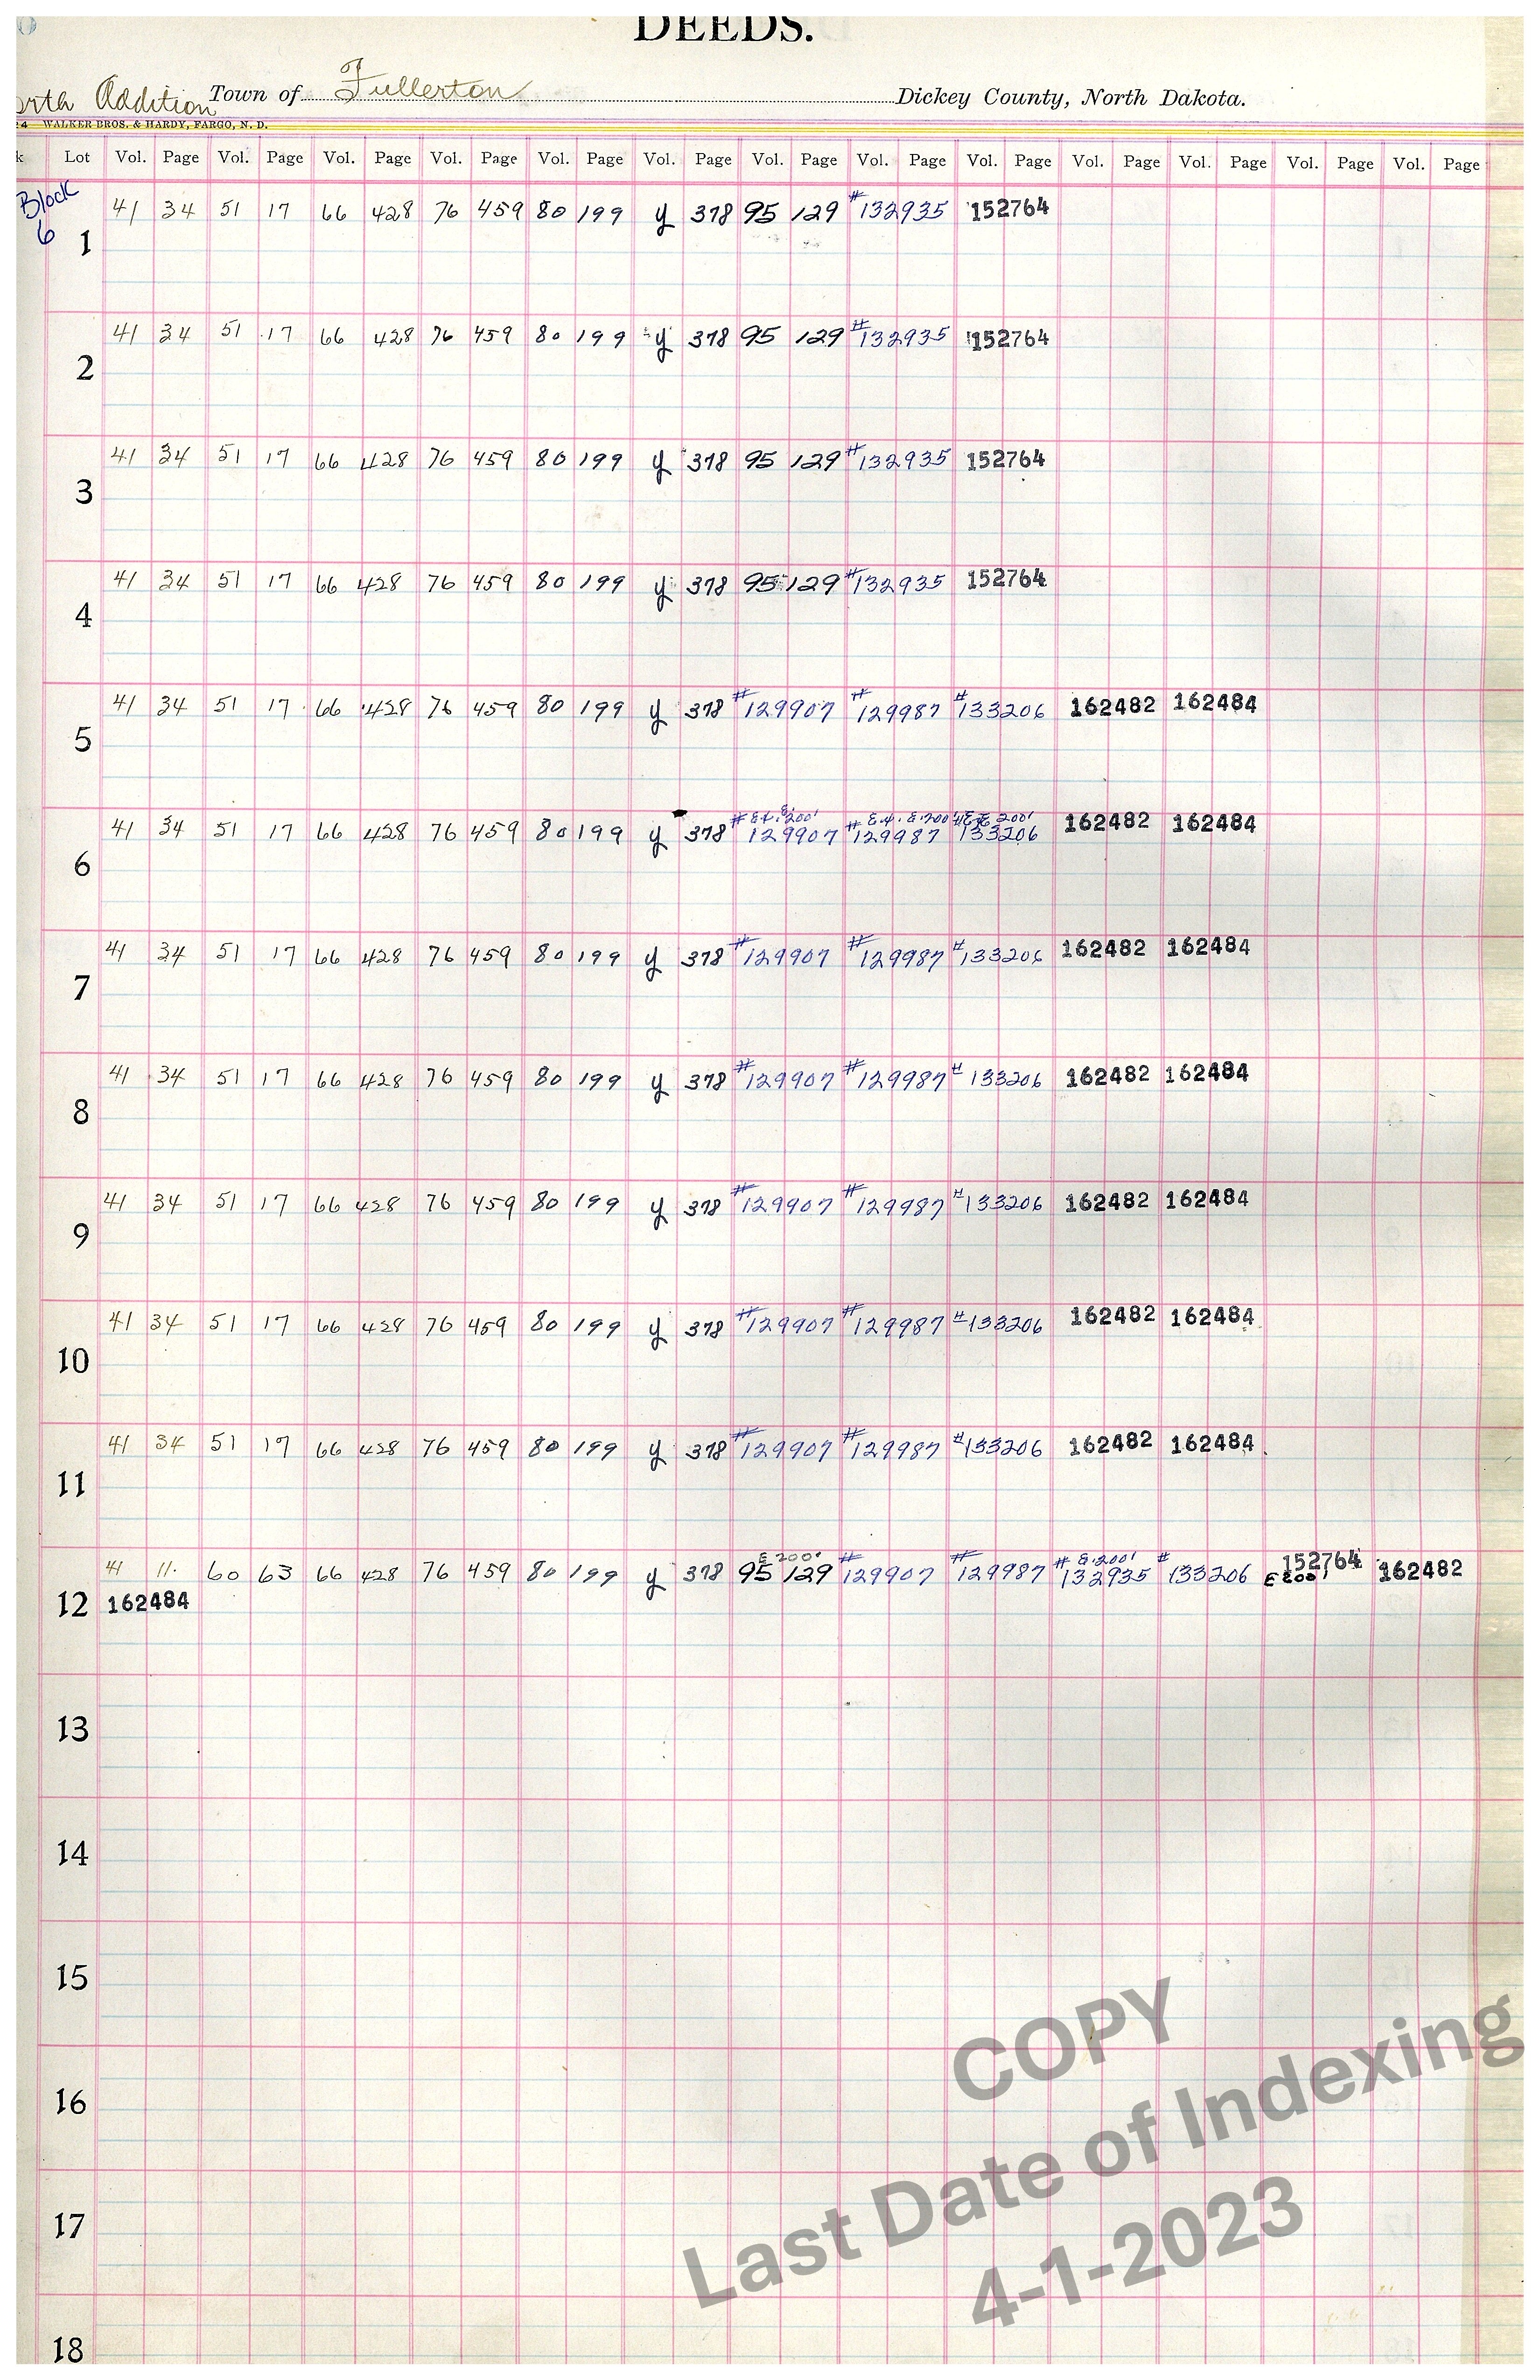 DEEDS.
orth Addition Town of Fullerton Dickey County, North Dakota.
24 WALKER BROS. & HARDY, FARGO, N. D.
k Lot Vol. Page Vol. Page Vol. Page Vol. Page Vol. Page Vol. Page Vol. Page Vol. Page Vol. Page Vol. Page Vol. Page Vol. Page Vol. Page
Block 6
1 41 34 51 17 66 428 76 459 80 199 y 378 95 129 #132935 152764
2 41 34 51 17 66 428 76 459 80 199 y 378 95 129 #132935 152764
3 41 34 51 17 66 428 76 459 80 199 y 378 95 129 #132935 152764
4 41 34 51 17 66 428 76 459 80 199 y 378 95 129 #132935 152764
5 41 34 51 17 66 428 76 459 80 199 y 378 #129907 #129987 #133206 162482 162484
6 41 34 51 17 66 428 76 459 80 199 y 378 #129907 #129987 133206 162482 162484
7 41 34 51 17 66 428 76 459 80 199 y 378 #129907 #129987 #133206 162482 162484
8 41 34 51 17 66 428 76 459 80 199 y 378 #129907 #129987 #133206 162482 162484
9 41 34 51 17 66 428 76 459 80 199 y 378 #129907 #129987 #133206 162482 162484
10 41 34 51 17 66 428 76 459 80 199 y 378 #129907 #129987 #133206 162482 162484
11 41 34 51 17 66 428 76 459 80 199 y 378 #129907 #129987 #133206 162482 162484
E 200' E.200' 152764
12 41 11. 60 63 66 428 76 459 80 199 y 378 95 129 #129907 #129987 #132935 #133206 E 200' 162482
162484
13
14
15
16
17
18
COPY
Last Date of Indexing
4-1-2023